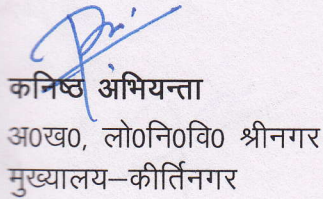 कनिष्ठ अभियन्ता
अ0ख0, लो0नि0वि0 श्रीनगर
मुख्यालय–कीर्तिनगर